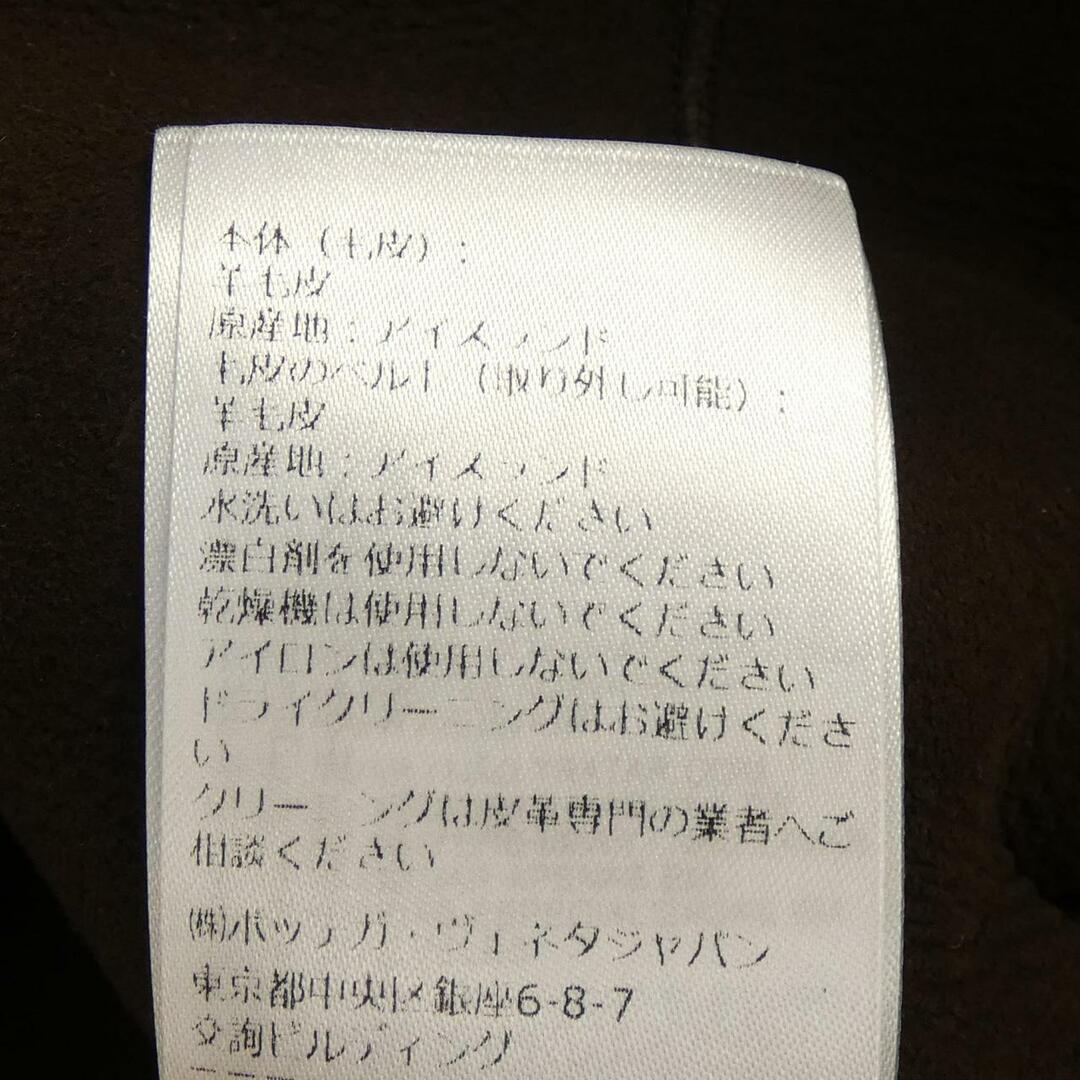 本体（毛皮）:
羊毛皮
原産地：アイスランド
毛皮のベルト（取り外し可能）:
羊毛皮
原産地：アイスランド
水洗いはお避けください
漂白剤を使用しないでください
乾燥機は使用しないでください
アイロンは使用しないでください
ドライクリーニングはお避けくださ
い
クリーニングは皮革専門の業者へご
相談ください
㈱ボッテガ・ヴェネタジャパン
東京都中央区銀座6-8-7
交詢ビルディング